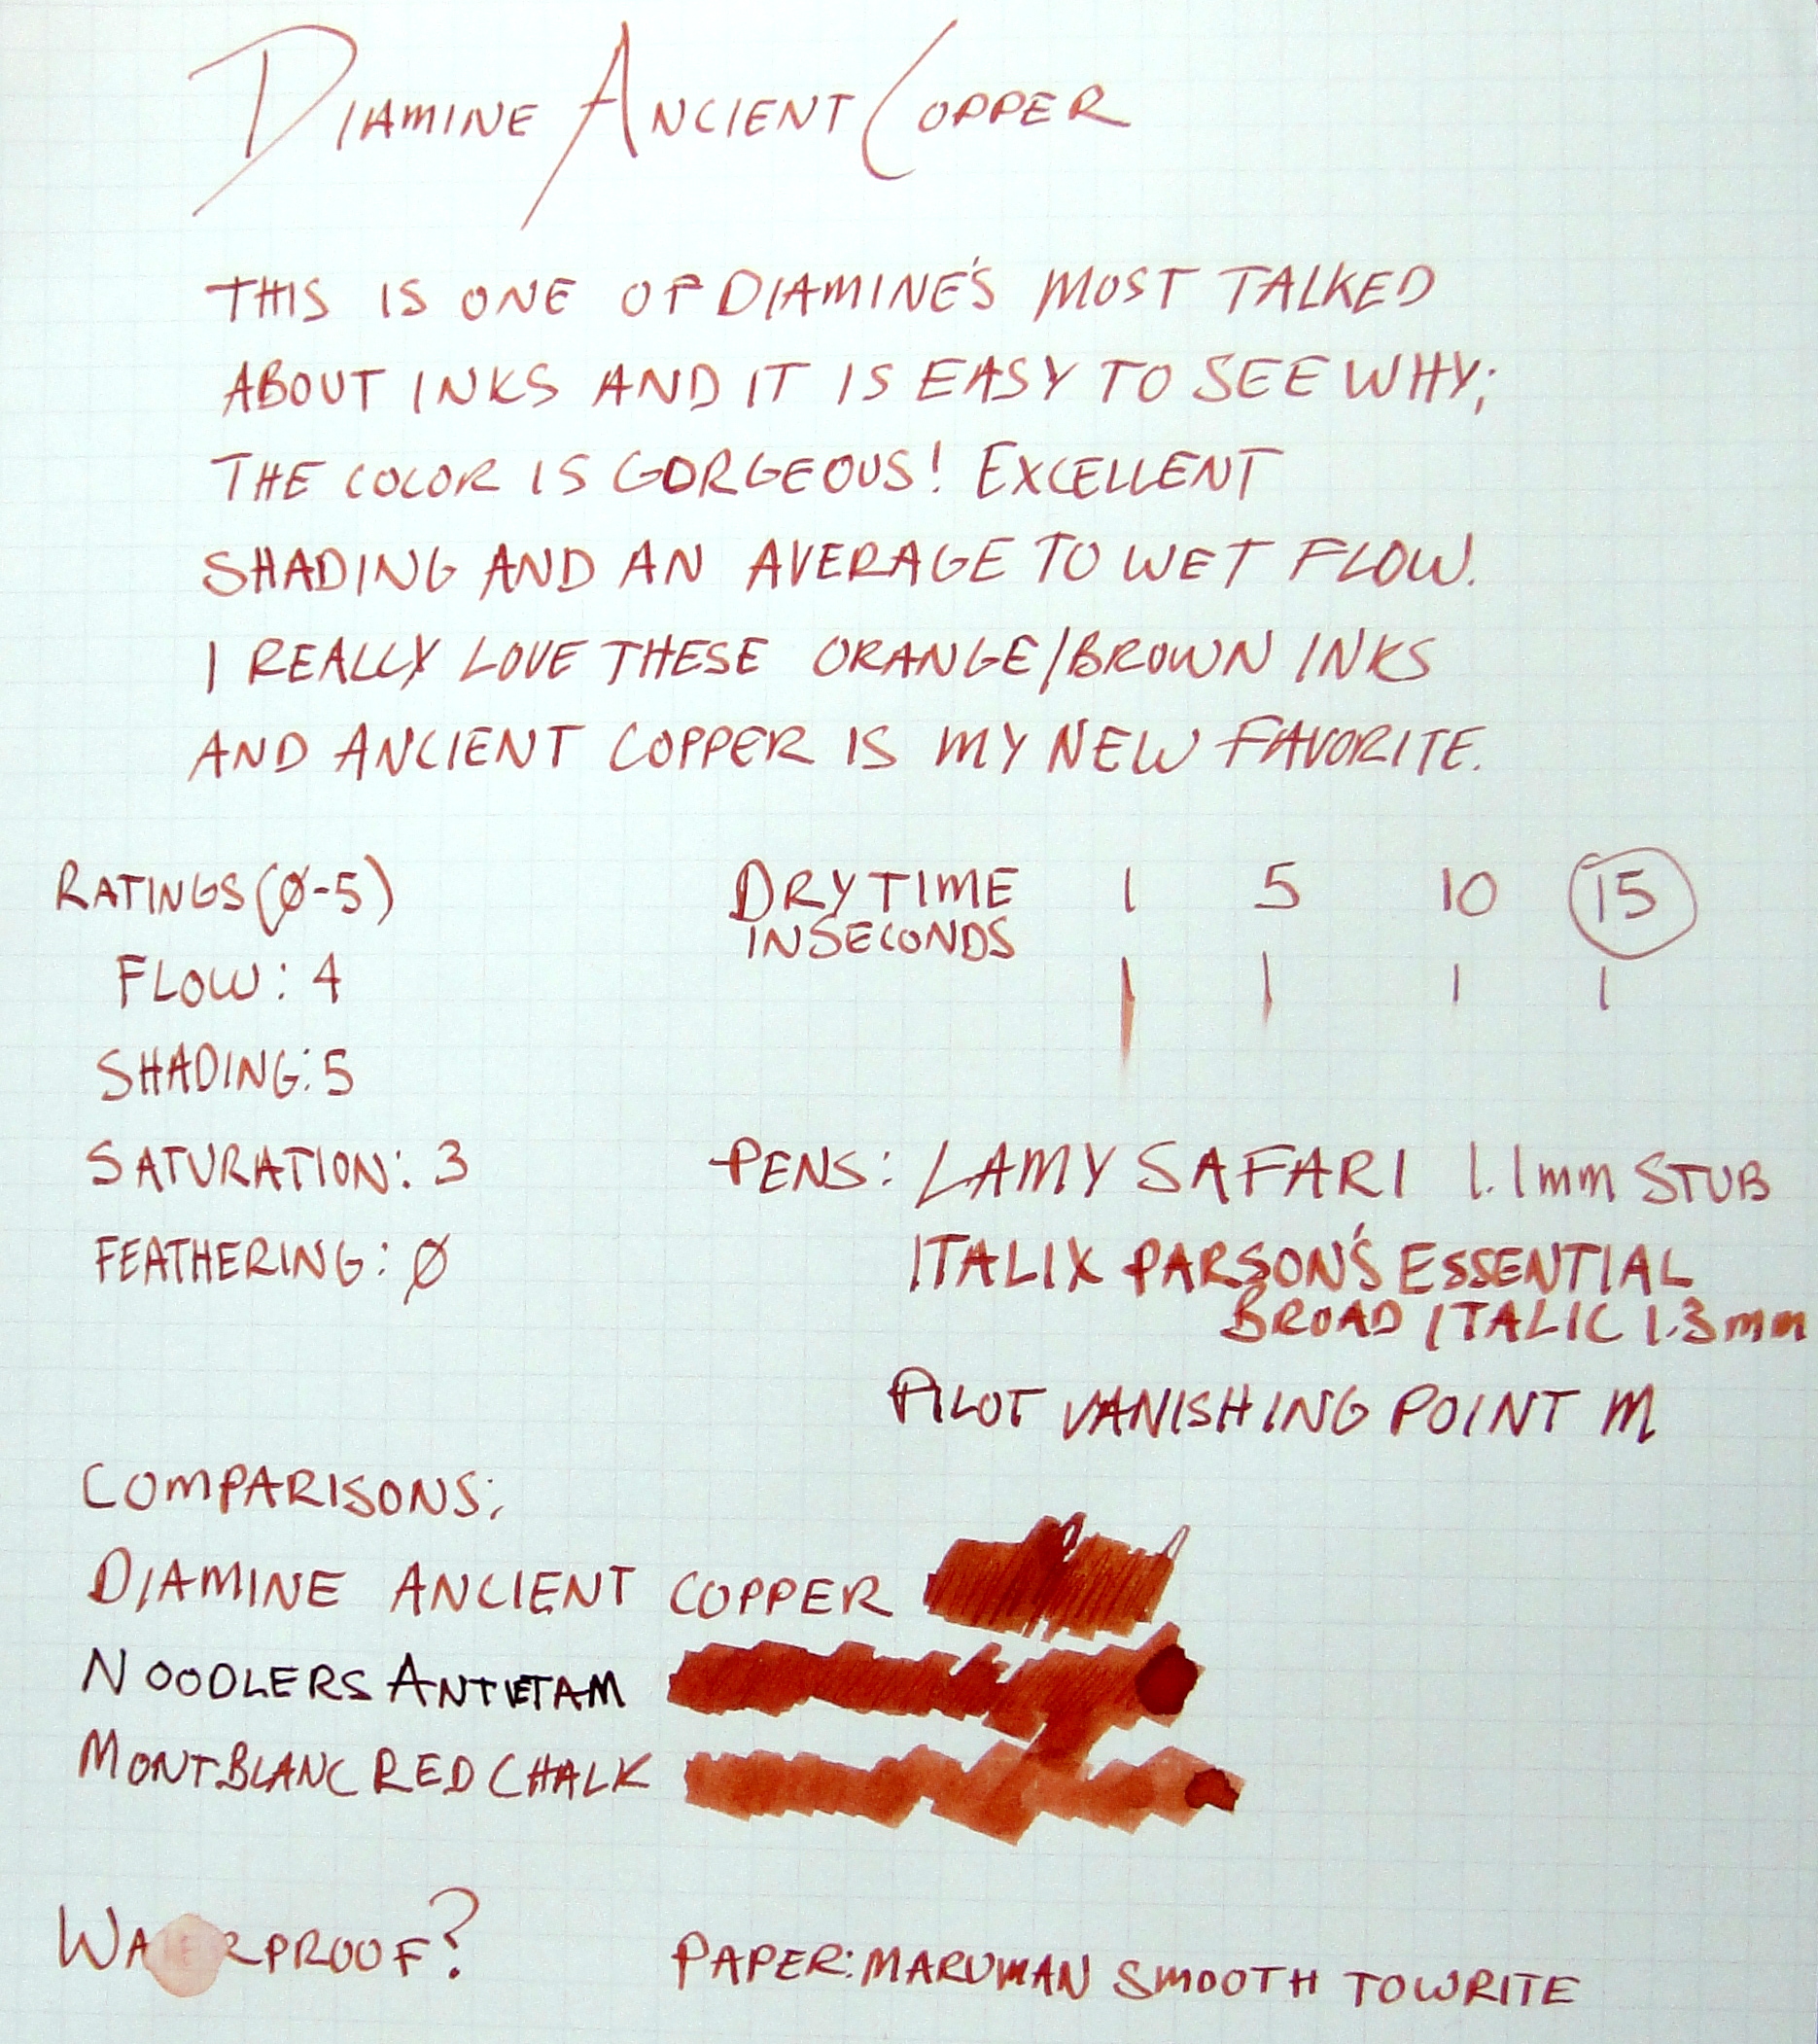 DIAMINE ANCIENT COPPER
THIS IS ONE OF DIAMINE'S MOST TALKED
ABOUT INKS AND IT IS EASY TO SEE WHY;
THE COLOR IS GORGEOUS! EXCELLENT
SHADING AND AN AVERAGE TO WET FLOW.
I REALLY LOVE THESE ORANGE/BROWN INKS
AND ANCIENT COPPER IS MY NEW FAVORITE.
RATINGS (0-5)
FLOW: 4
SHADING: 5
SATURATION: 3
FEATHERING: 0
DRY TIME 1 5 10 15
IN SECONDS
PENS: LAMY SAFARI 1.1mm STUB
ITALIX PARSON'S ESSENTIAL
BROAD ITALIC 1.3mm
PILOT VANISHING POINT M
COMPARISONS;
DIAMINE ANCIENT COPPER
NOODLERS ANTIETAM
MONTBLANC RED CHALK
WATERPROOF?
PAPER: MARUMAN SMOOTH TO WRITE